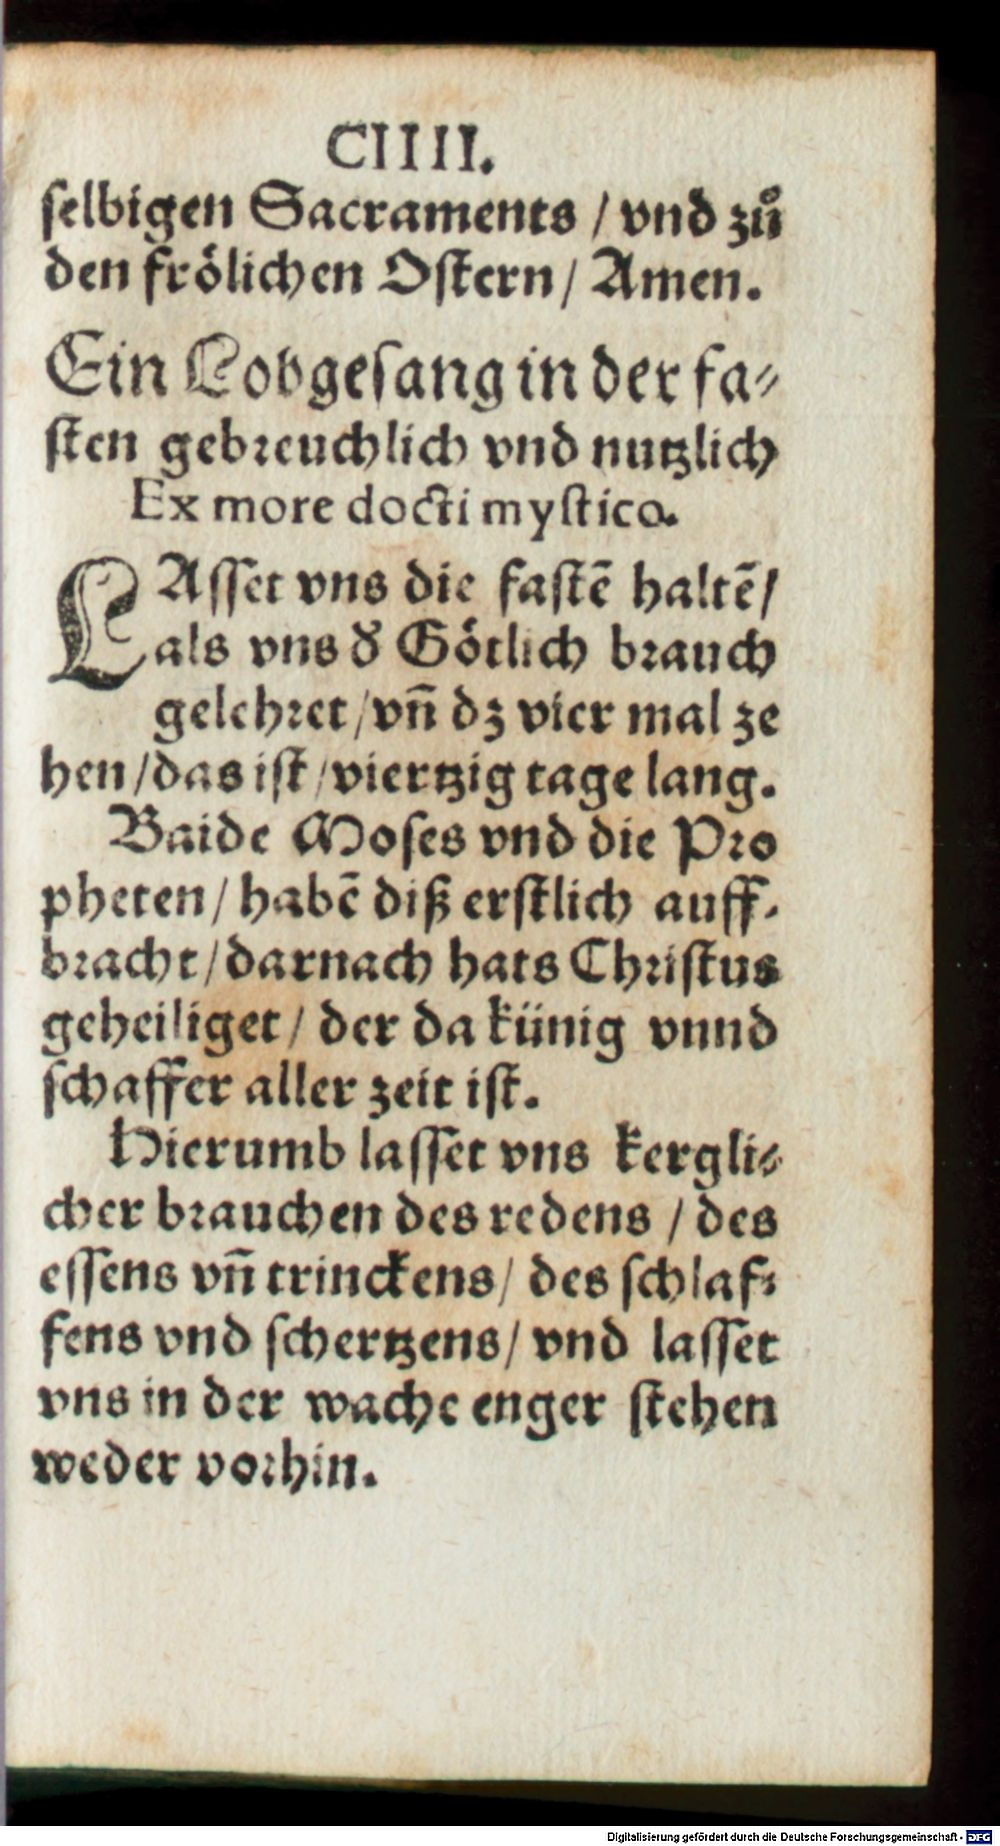 CIIII.
ſelbigen Sacraments / vnd zuͦ
den froͤlichen Oſtern / Amen.
Ein Lobgeſang in der fa⸗
ſten gebreuchlich vnd nutzlich
Ex more docti myſtico.
LAſſet vns die faſtē haltē /
als vns d̕ Goͤtlich brauch
gelehret / vn̄ dz vier mal ze
hen / das iſt / viertzig tage lang.
Baide Moſes vnd die Pro
pheten / habē diß erſtlich auff⸗
bracht / darnach hats Chriſtus
geheiliget / der da künig vnnd
ſchaffer aller zeit iſt.
Hierumb laſſet vns kergli⸗
cher brauchen des redens / des
eſſens vn̄ trinckens / des ſchlaf⸗
fens vnd ſchertzens / vnd laſſet
vns in der wache enger ſtehen
weder vorhin.
Digitalisierung gefördert durch die Deutsche Forschungsgemeinschaft - DFG